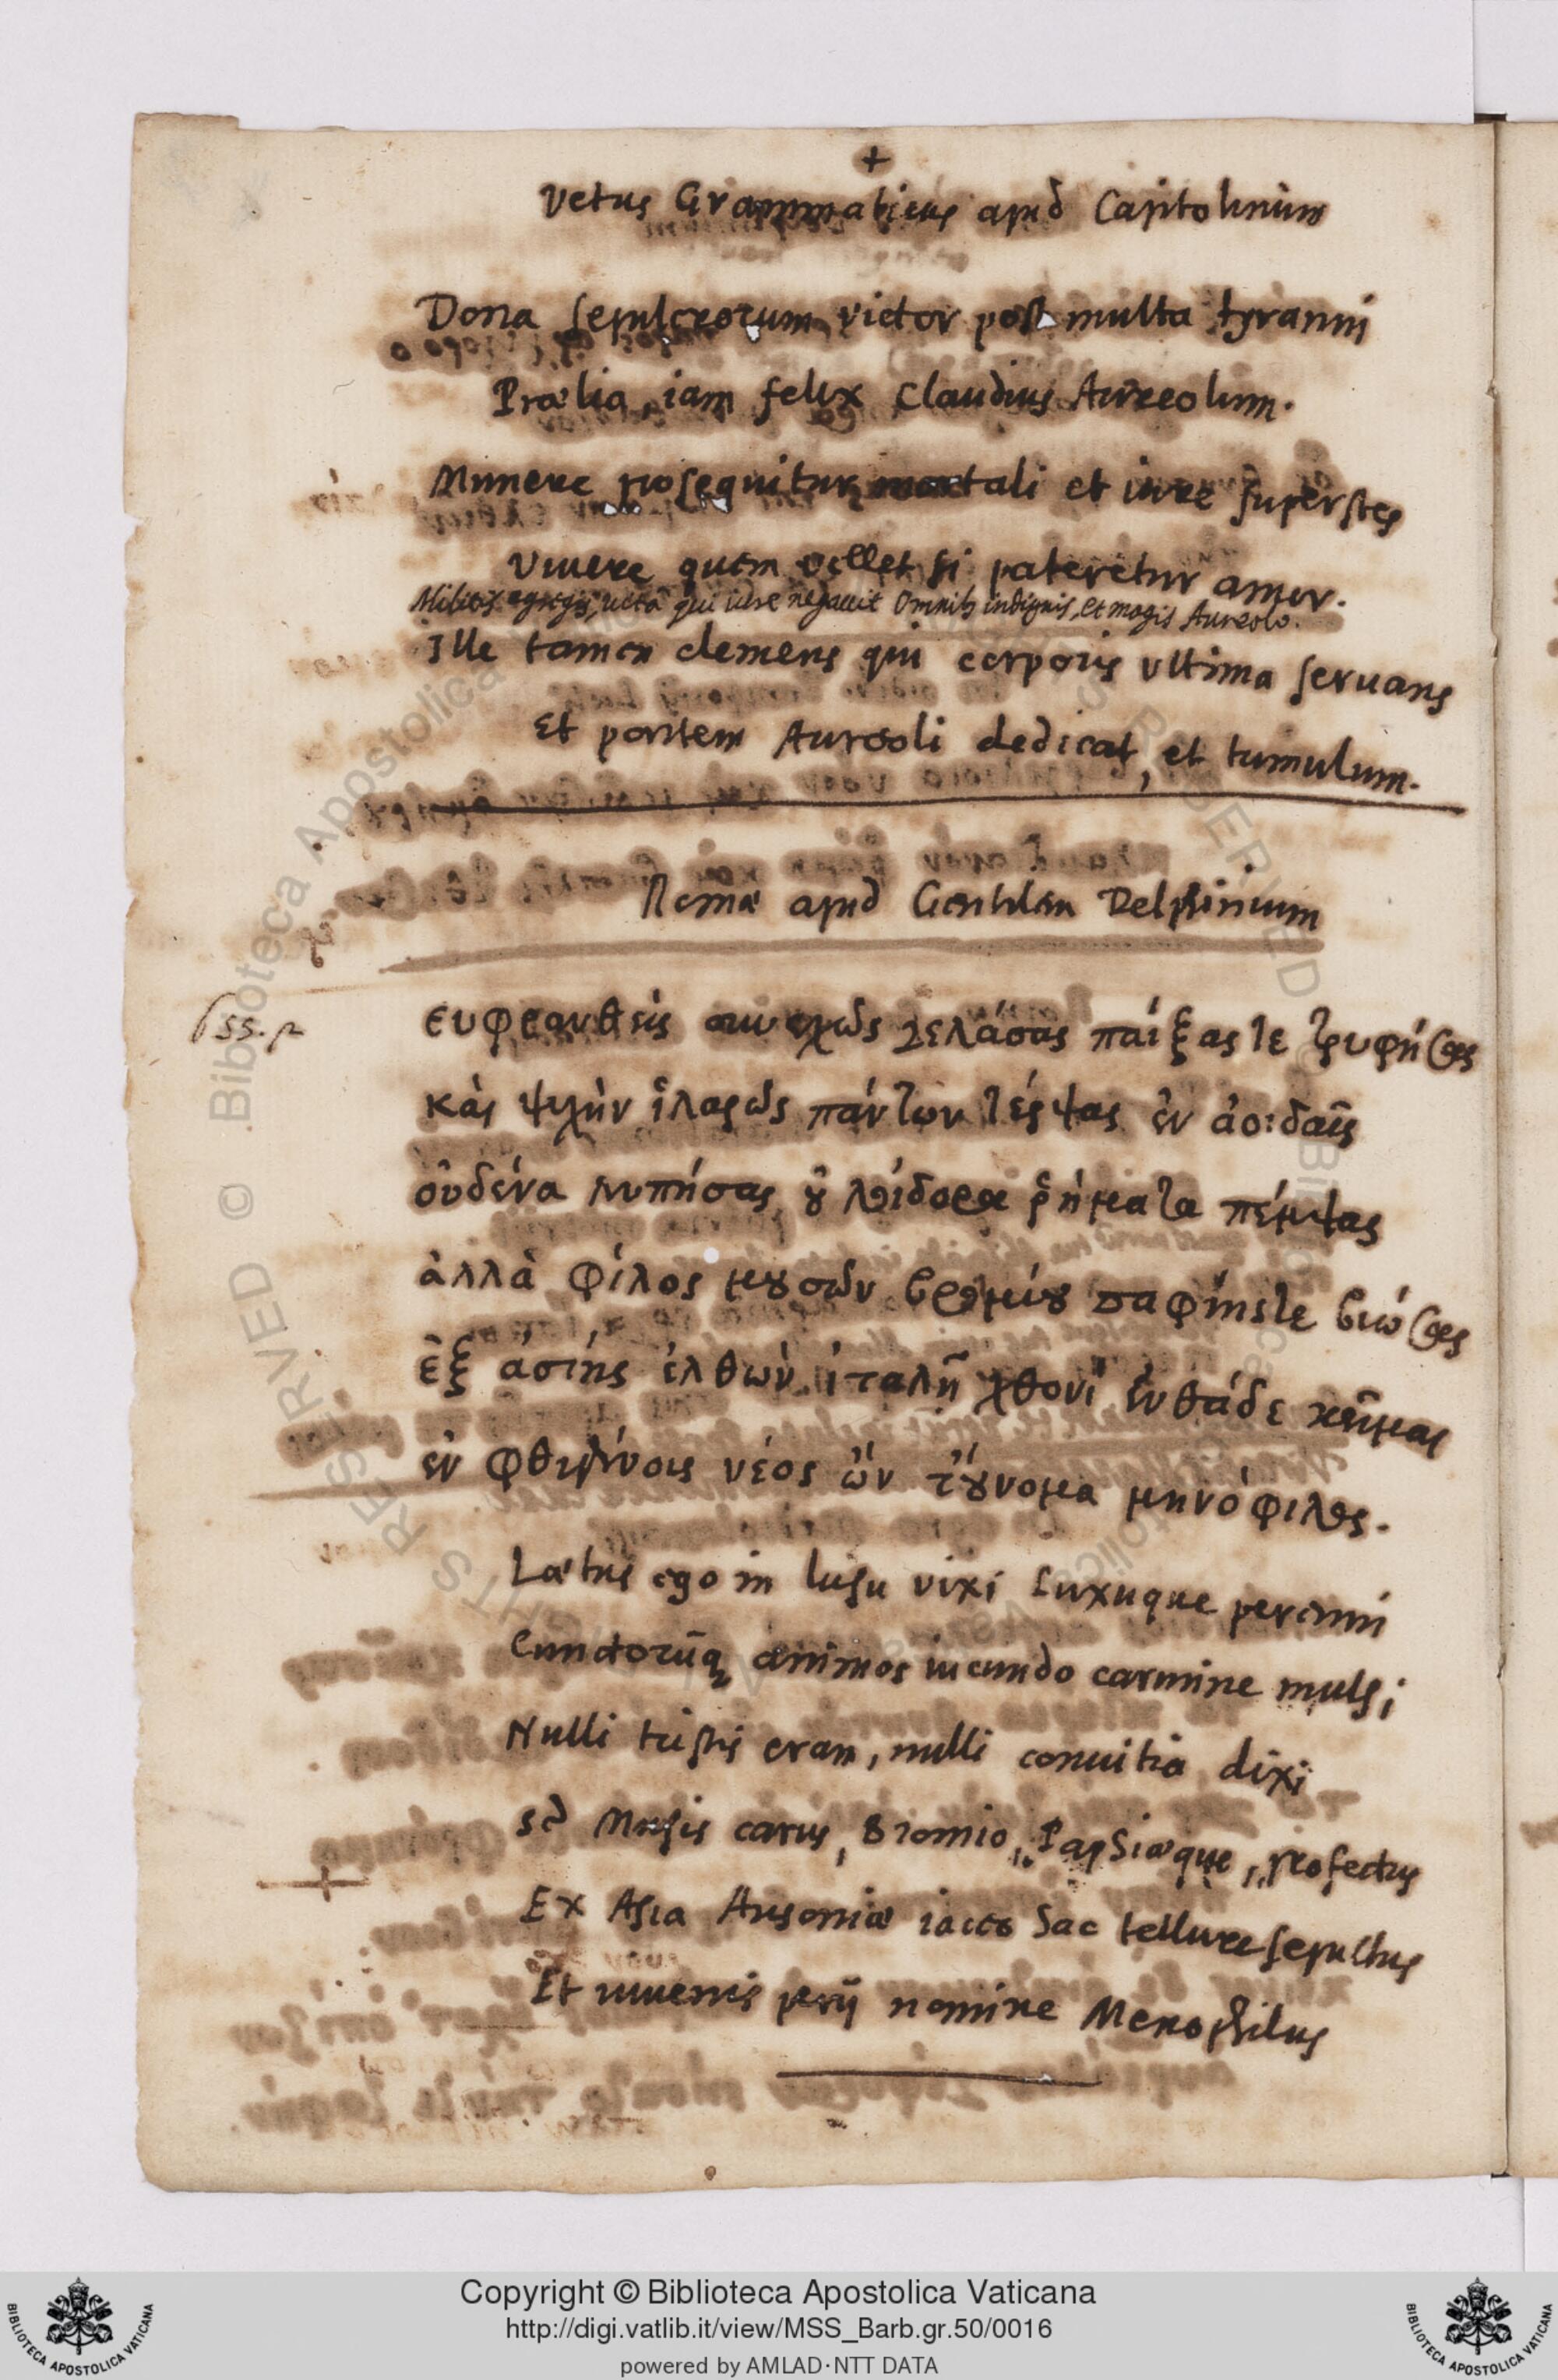 +
Vetus Grammaticus apud Capitolinum
Dona sepulcrorum victor post multa tyranni
Prælia, iam felix Claudius Aureolum.
Munere prosequitur mortali et iure superstes
Viuere quem vellet si pateretur amor.
Militis egregij, uita qui iure negauit Omnib; indignis, et magis Aureolo.
Ille tamen clemens qui corporis ultima seruans
Et pontem Aureoli dedicat, et tumulum.
Romæ apud Gentilem Delphinium
ευφρανθεὶς συνεχῶς γελάσας παίξας τε τρυφήσας
καὶ ψυχὴν ἱλαρῶς πάντων τέρψας ἐν ἀοιδαῖς
οὐδένα λυπήσας, ȣ λοίδορα ῥήματα πέμψας
ἀλλὰ φίλος μȣσῶν βρομίȣ παφίης τε βιώσας
ἐξ ἀσίης ἐλθὼν ἰταλῆ χθονὶ ἐνθάδε κεῖμαι
ἐν φθιμένοις νέος ὢν τȣ̓́νομα μηνόφιλος.
Lætus ego in lusu vixi luxuque perenni
Cunctorūq animos iucundo carmine mulsi
Nulli tristis eram, nulli conuitia dixi
Sd Musis carus, Bromio, Paphiæque, profectus
Ex Asia Ausoniæ iaceo hac tellure sepultus
Et iuuenis perij nomine Menophilus
Copyright © Biblioteca Apostolica Vaticana
http://digi.vatlib.it/view/MSS_Barb.gr.50/0016
powered by AMLAD·NTT DATA